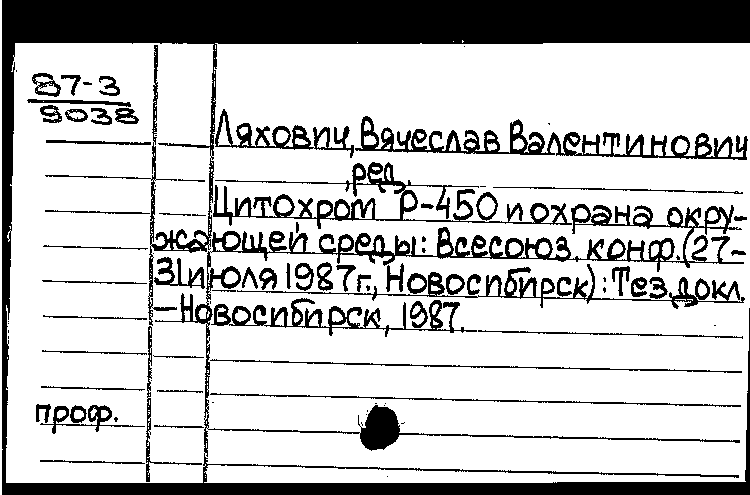 87-3
9038
Ляхович, Вячеслав Валентинович
, ред.
Цитохром P-450 и охрана окру-
жающей среды: Всесоюз. конф. (27-
31 июля 1987г., Новосибирск): Тез. докл.
—Новосибирск, 1987.
проф.